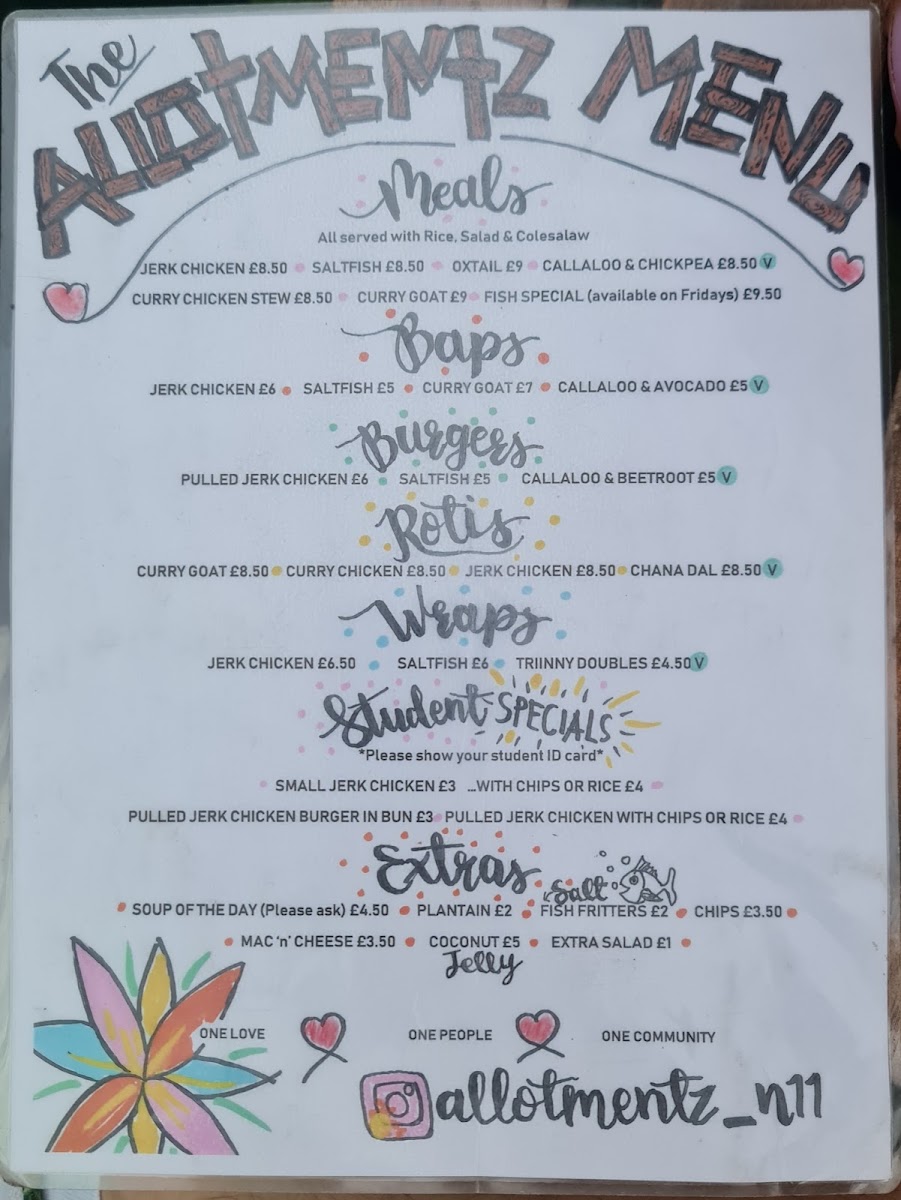 The
ALLOTMENTZ MENU
Meals
All served with Rice, Salad & Colesalaw
JERK CHICKEN £8.50 SALTFISH £8.50 OXTAIL £9 CALLALOO & CHICKPEA £8.50 V
CURRY CHICKEN STEW £8.50 CURRY GOAT £9 FISH SPECIAL (available on Fridays) £9.50
Baps
JERK CHICKEN £6 SALTFISH £5 CURRY GOAT £7 CALLALOO & AVOCADO £5 V
Burgers
PULLED JERK CHICKEN £6 SALTFISH £5 CALLALOO & BEETROOT £5 V
Rotis
CURRY GOAT £8.50 CURRY CHICKEN £8.50 JERK CHICKEN £8.50 CHANA DAL £8.50 V
Wraps
JERK CHICKEN £6.50 SALTFISH £6 TRIINNY DOUBLES £4.50 V
Student SPECIALS
*Please show your student ID card*
SMALL JERK CHICKEN £3 ...WITH CHIPS OR RICE £4
PULLED JERK CHICKEN BURGER IN BUN £3 PULLED JERK CHICKEN WITH CHIPS OR RICE £4
Extras
Salt
SOUP OF THE DAY (Please ask) £4.50 PLANTAIN £2 FISH FRITTERS £2 CHIPS £3.50
MAC 'n' CHEESE £3.50 COCONUT £5 EXTRA SALAD £1
Jelly
ONE LOVE ONE PEOPLE ONE COMMUNITY
allotmentz_n11